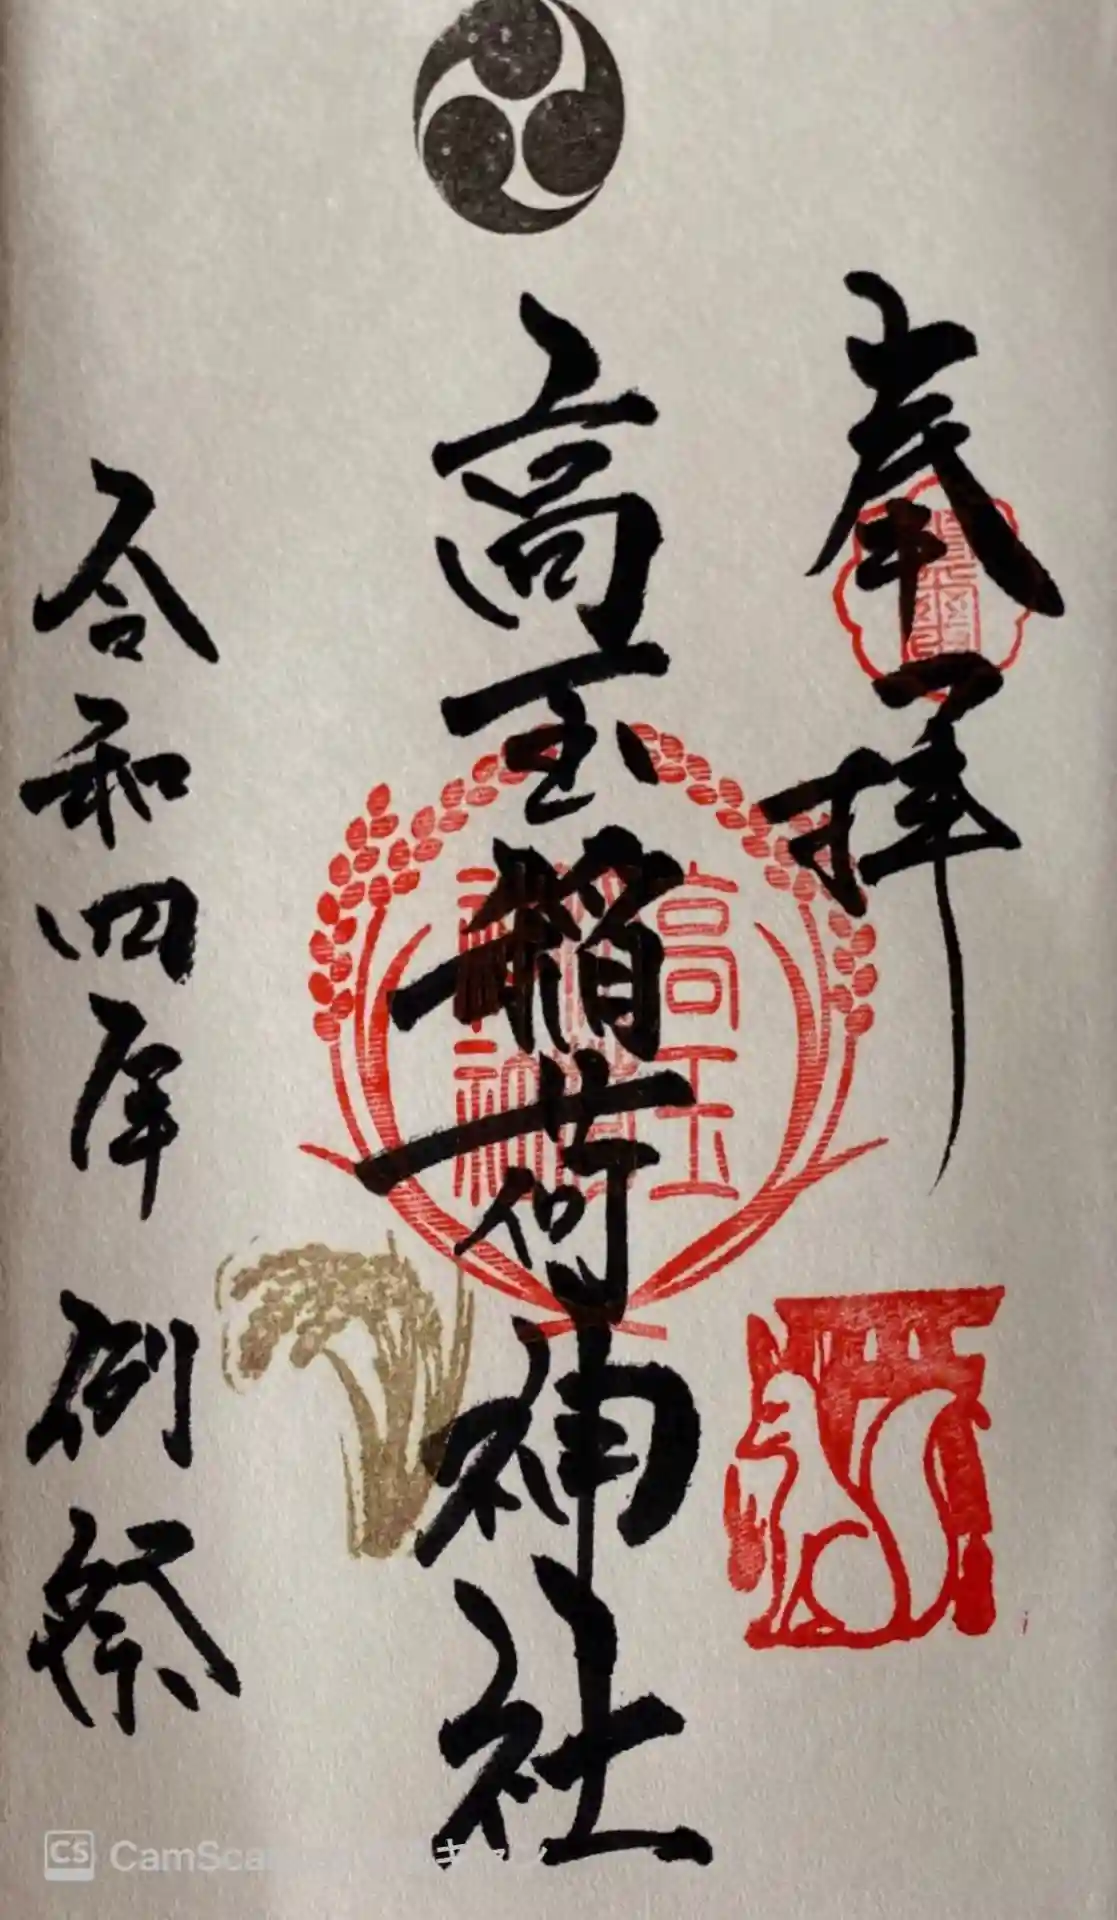 奉拝
高玉稲荷神社
高玉
令和四年 例祭
CS CamSca